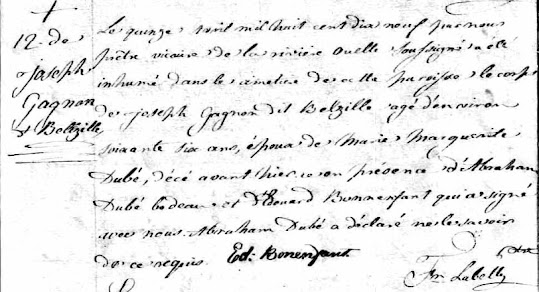 12. de
Joseph
Gagnon
Beltzille
Le quinze Avril mil huit cent dix neuf par nous
prêtre vicaire de la rivière Ouelle soussigné a été
inhumé dans le cimetière de cette paroisse le corps
de Joseph Gagnon dit Belzille agé d'environ
soixante six ans, époux de Marie Marguerite
Dubé, décé avant hier, en présence d'Abraham
Dubé bedeau et d'Edouard Bonnenfant qui a signé
avec nous. Abraham Dubé a déclaré ne le savoir
de ce requis. Ed. Bonenfant
Fr. Labelle Ptre